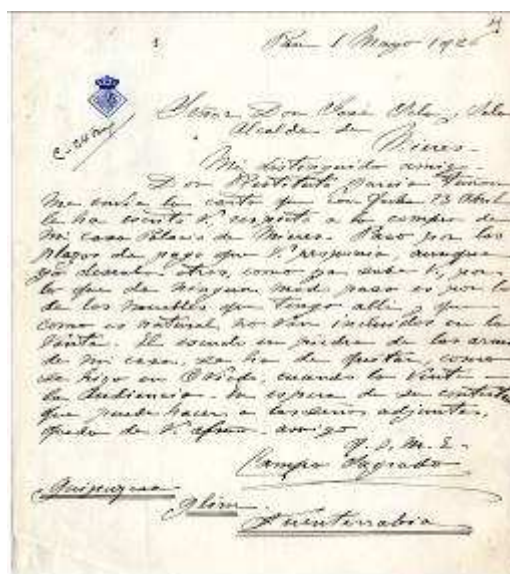 1 Mayo 192
C-24 my
Señor Don José Sela y Sela
Alcalde de
Mieres-
Mi distinguido amigo
Don Restituto Garcia Tuñon
me envia la carta que con fecha 13 Abril
le ha escrito V. respecto a la compra de
mi casa Palacio de Mieres. Paso por los
plazos de pago que V. propone, aunque
yo deseaba otros, como ya sabe V., por
lo que de ningun modo paso es por lo
de los muebles que tengo alli, y que
como es natural, no van incluidos en la
venta. El escudo en piedra de las armas
de mi casa, se ha de quitar, como
se hizo en Oviedo, cuando la venta
la Audiencia. En espera de su contesta
que puede hacer a las señas adjuntas,
queda de V. afmo. amigo
q. s. m. e.
Campo Sagrado
Guipuzcoa
Fuenterrabia